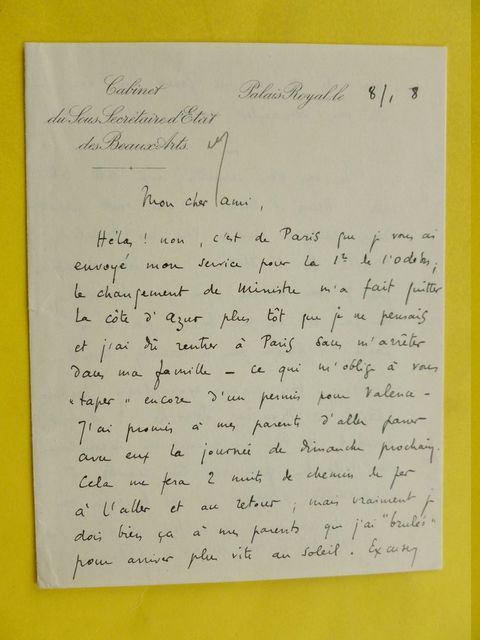 Cabinet
du Sous Secrétaire d'Etat
des Beaux-Arts.
Palais Royal, le 8/1 8
Mon cher ami,
Hélas ! non, c'est de Paris que je vous ai
envoyé mon service pour la 1re de l'Odéon ;
le changement de Ministre m'a fait quitter
la côte d'Azur plus tôt que je ne pensais
et j'ai dû rentrer à Paris sans m'arrêter
dans ma famille — ce qui m'oblige à vous
"taper" encore d'un permis pour Valence —
J'ai promis à mes parents d'aller passer
avec eux la journée de dimanche prochain.
Cela me fera 2 nuits de chemin de fer
à l'aller et au retour ; mais vraiment je
dois bien ça à mes parents que j'ai "brulés"
pour arriver plus vite au soleil. Excusez